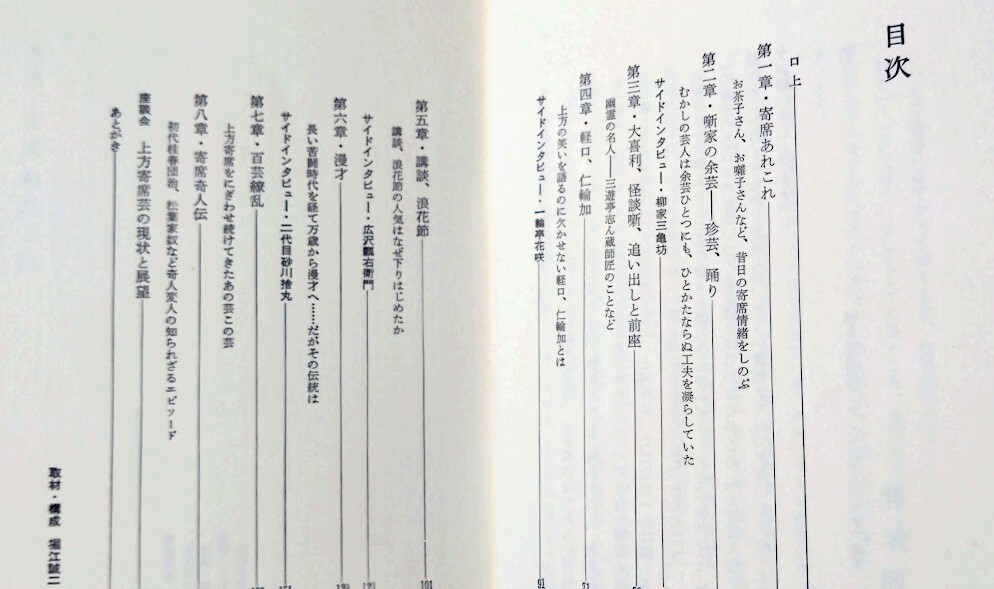 目次
口上
第一章・寄席あれこれ
お茶子さん、お囃子さんなど、昔日の寄席情緒をしのぶ
第二章・噺家の余芸――珍芸、踊り
むかしの芸人は余芸ひとつにも、ひとかたならぬ工夫を凝らしていた
サイドインタビュー・柳家三亀坊
第三章・大喜利、怪談噺、追い出しと前座
幽霊の名人――三遊亭志ん蔵師匠のことなど
第四章・軽口、仁輪加 71
上方の笑いを語るのに欠かせない軽口、仁輪加とは
サイドインタビュー・一輪亭花咲 91
第五章・講談、浪花節 101
講談、浪花節の人気はなぜ下りはじめたか
サイドインタビュー・広沢瓢右衛門
第六章・漫才
長い苦闘時代を経て万歳から漫才へ……だがその伝統は
サイドインタビュー・二代目砂川捨丸
第七章・百芸繚乱
上方寄席をにぎわせ続けてきたあの芸この芸
第八章・寄席奇人伝
初代桂春団治、松葉家奴など奇人変人の知られざるエピソード
座談会 上方寄席芸の現状と展望
あとがき
取材・構成 堀江誠二